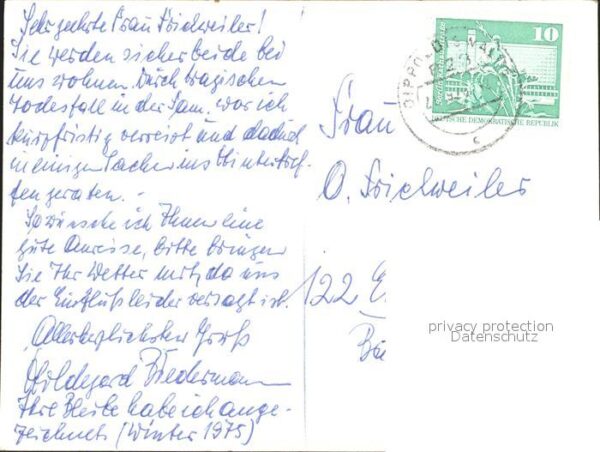 Sehr geehrte Frau Frielweiler!
Sie werden sicher beide bei
uns wohnen. Durch tragischen
Todesfall in der Fam. war ich
kurzfristig verreist und dadurch
in einigen Sachen ins Hintertref-
fen geraten. -
So wünsche ich Ihnen eine
gute Anreise, bitte bringen
Sie Ihr Wetter mit, da uns
der Einfluß leider versagt ist.
Allerherzlichsten Gruß
Hildegard Biedermann
Ihre Bleibe habe ich ange-
zeichnet. (Winter 1975)
10
DEUTSCHE DEMOKRATISCHE REPUBLIK
Frau
O. Frielweiler
122 E.
privacy protection
Datenschutz